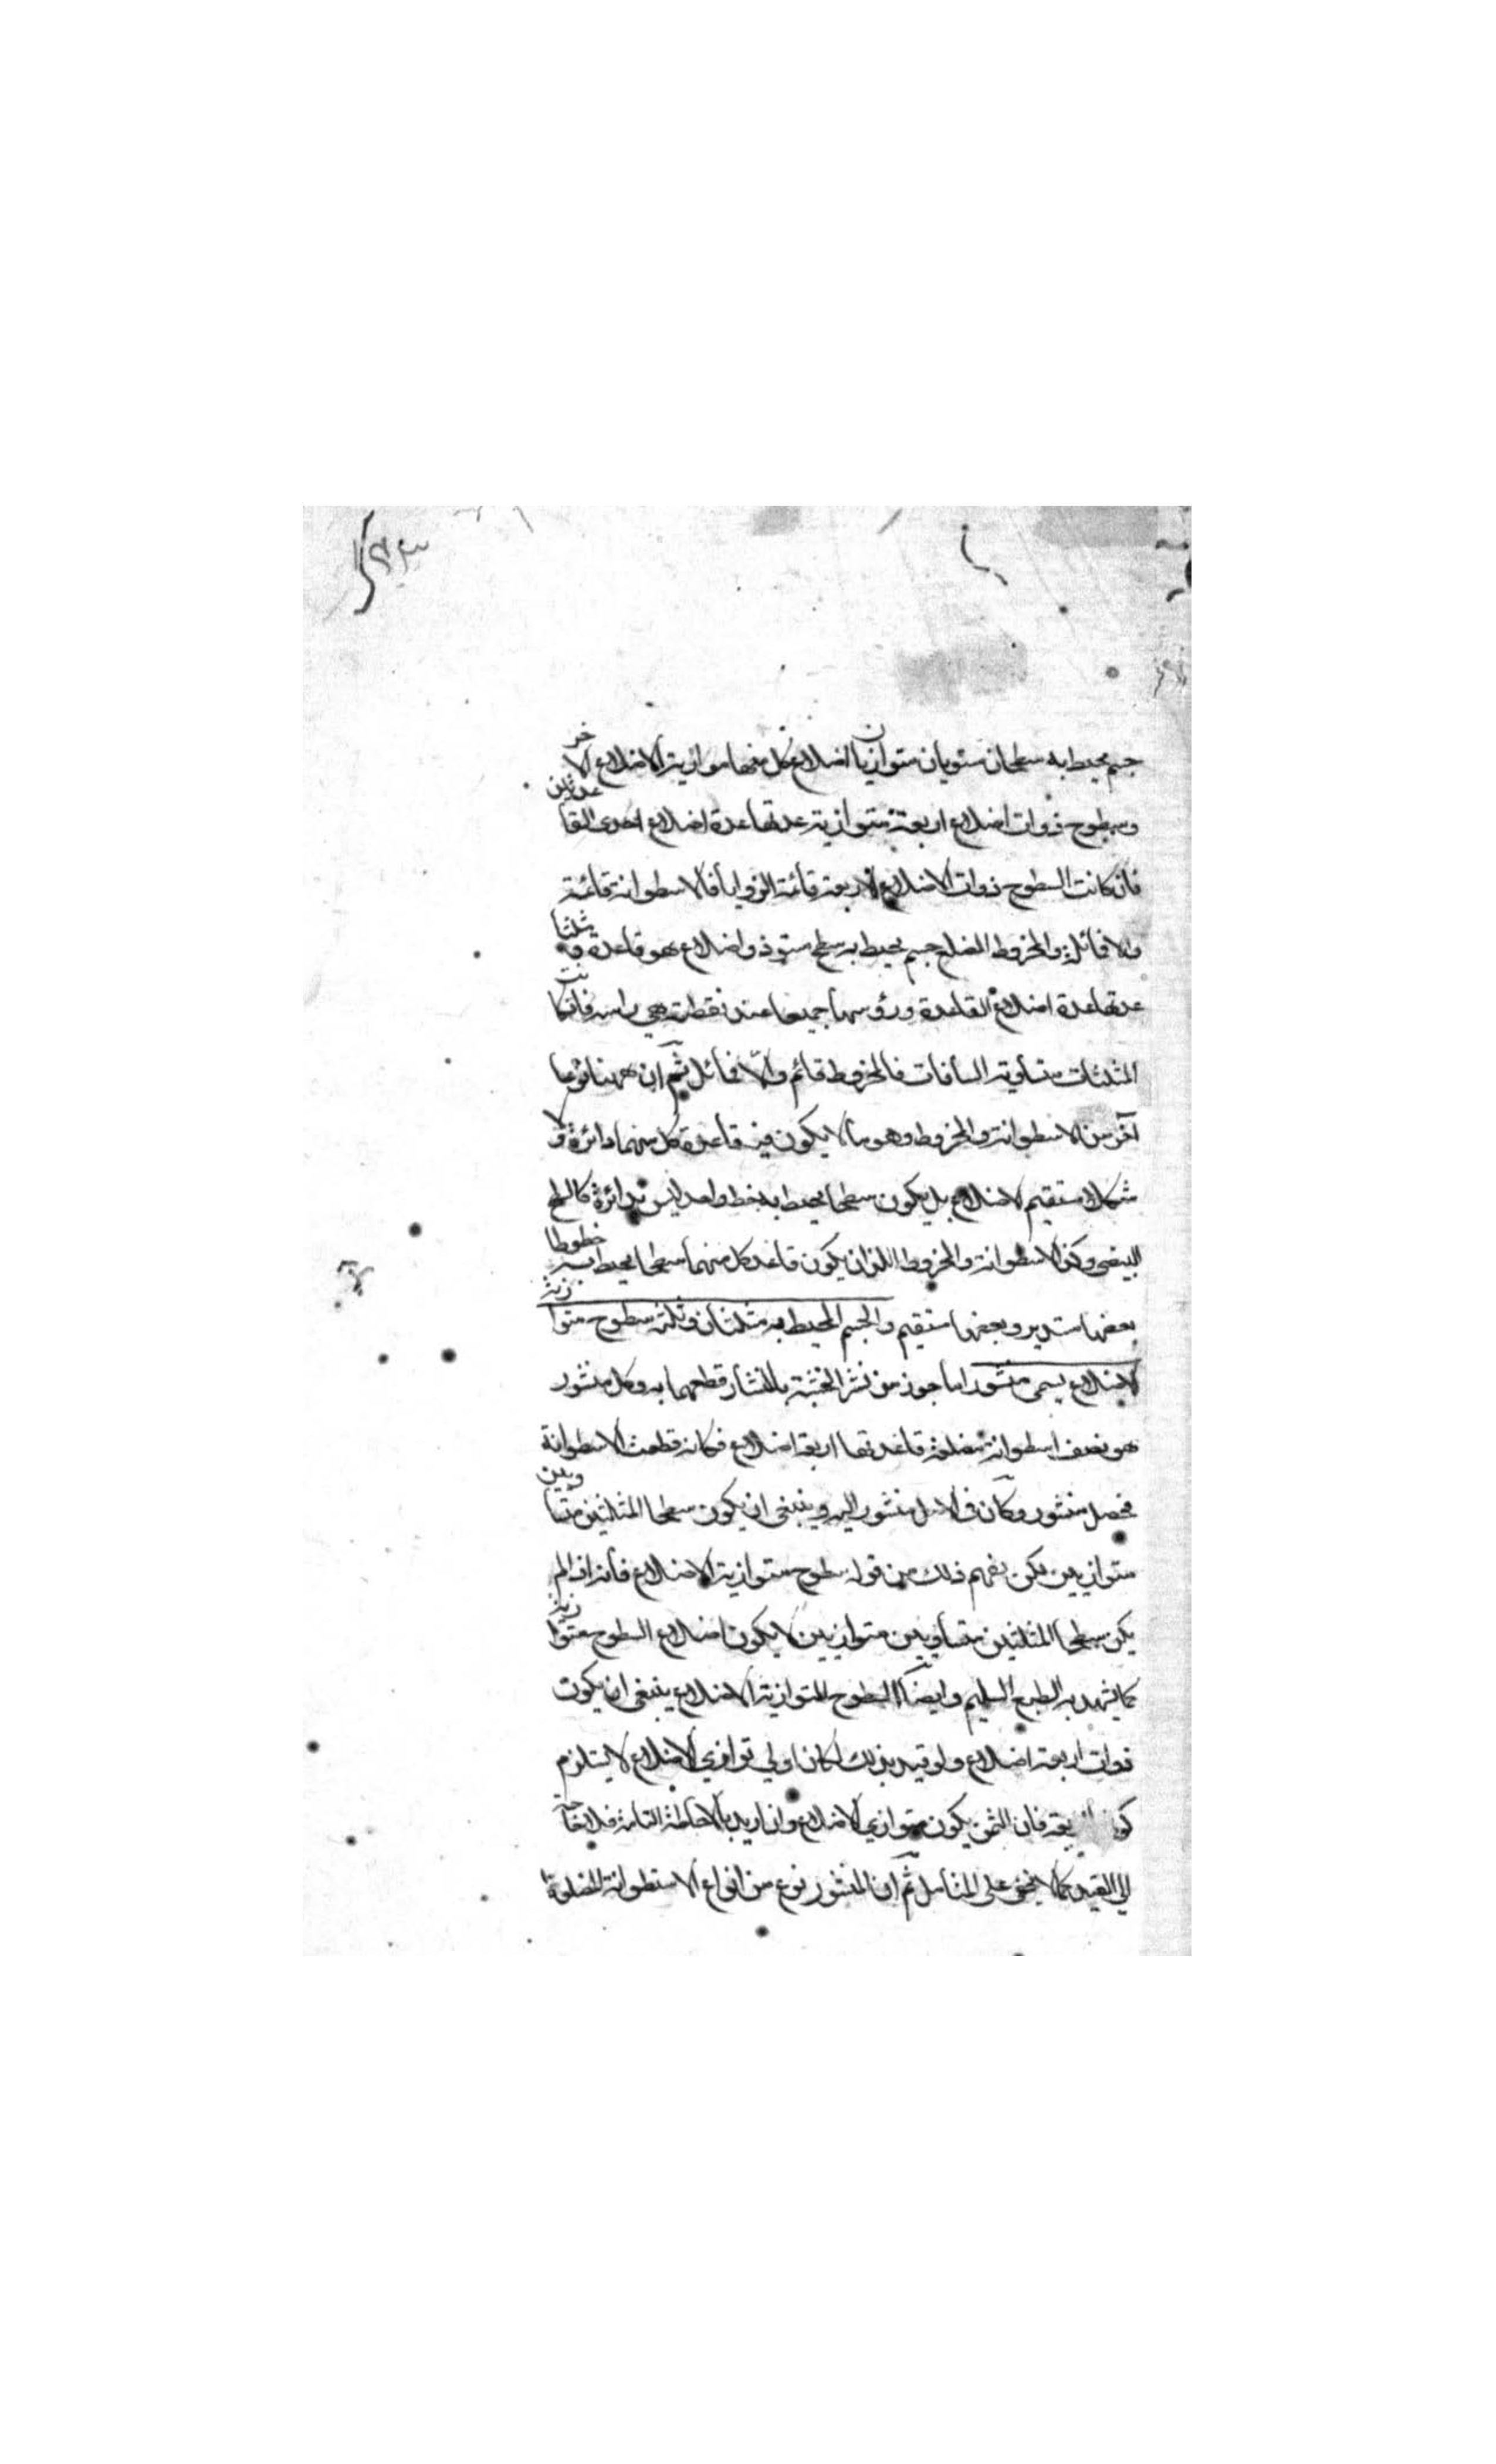 جسم يحيط به سطحان مستويان متوازيان اضلاع كل منهما موازية الاضلاع الاخر
وسطوح ذوات اضلاع اربعة متوازية عدتها عدة اضلاع احدى القاعدتين
فان كانت السطوح ذوات الاضلاع الاربعة قائمة الزوايا فالاسطوانة قائمة
والا فمائلة والمخروط المضلع جسم يحيط به سطح مستو ذو اضلاع هو قاعدته ومثلثات
عدتها عدة اضلاع القاعدة ورؤسها جميعا عند نقطة هي راسه فان كانت
المثلثات متساوية الساقات فالمخروط قائم والا فمائل ثم ان ههنا نوعا
آخر من الاسطوانة والمخروط وهو ما لا يكون فيه قاعدة كل منهما دائرة ولا
شكلا مستقيم الاضلاع بل يكون سطحا يحيط به خط واحد ليس بدائرة كالسطح
البيضي وكذا الاسطوانة والمخروط اللذان يكون قاعدة كل منهما سطحا يحيط به خطوط
بعضها مستدير وبعضها مستقيم والجسم المحيط به مثلثان وثلثة سطوح متوازية
الاضلاع يسمى منشورا ماخوذ من نشر الخشبة بالمنشار قطعها به وكل منشور
هو نصف اسطوانة مضلعة قاعدتها اربعة اضلاع فكانه قطعت الاسطوانة
فحصل منشور وكان في الاصل منشور اليه وينبغي ان يكون سطحا المثلثين متساويين
متوازيين يكن يفهم ذلك من قوله سطوح متوازية الاضلاع فانه اذا لم
يكن سطحا المثلثين متساويين متوازيين لا يكون اضلاع السطوح متوازية
كما يشهد به الطبع السليم وايضا السطوح المتوازية الاضلاع ينبغي ان يكون
ذوات اربعة اضلاع ولو قيد بذلك لكان اولى توازي الاضلاع لا يستلزم
فان المثمن يكون متوازي الاضلاع وان اريد بالاحاطة التامة فلا حاجة
الى القيد كما لا يخفى على المتامل ثم ان المنشور نوع من انواع الاسطوانة المضلعة